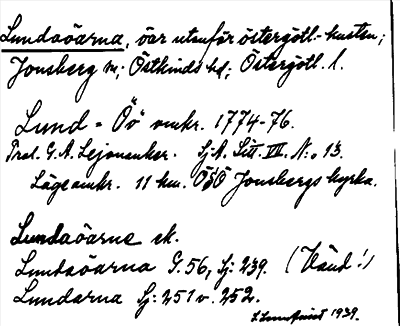 Lundaöarna, öar utanför östergötl.-kusten;
Jonsberg sn; Östkinds hd; Östergötl. l.
Lund-Öö omkr. 1774-76.
Prot. G. A. Lejonanker. Sj.A. Litt. VII. N:o 13.
Läge omkr. 11 km. ÖSÖ Jonsbergs kyrka.
Lundaöarne ek.
Lundaöarna G. 56, Sj: 239. (Vänd!)
Lundarna Sj: 251 v. 252.
1939.